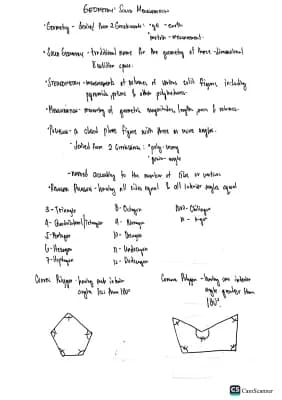 GEOMETRY: SOLID MENSURATION
• Geometry - derived from 2 Greek words: * - earth
* metria - measurement.
• SOLID GEOMETRY - traditional name for the geometry of three-dimensional
Euclidean space.
• STEREOMETRY - measurements of volumes of various solid figures, including
pyramids, prisms & other polyhedrons.
• MENSURATION - measuring of geometric magnitudes, lengths, areas & volumes.
• POLYGON - a closed plane figure with three or more angles.
- derived from 2 Greek words: * poly - many
* - angle
- named according to the number of sides or vertices
• REGULAR POLYGON - having all sides equal & all interior angles equal
3 - Triangle
8 - Octagon
1000 - Chiliagon
4 - Quadrilateral/Tetragon
9 - Nonagon
n - n-gon
5 - Pentagon
10 - Decagon
6 - Hexagon
11 - Undecagon
7 - Heptagon
12 - Dodecagon
CONVEX Polygon - having each interior
angle less than 180°
CONCAVE Polygon - having one interior
angle greater than
180°
CS CamScanner